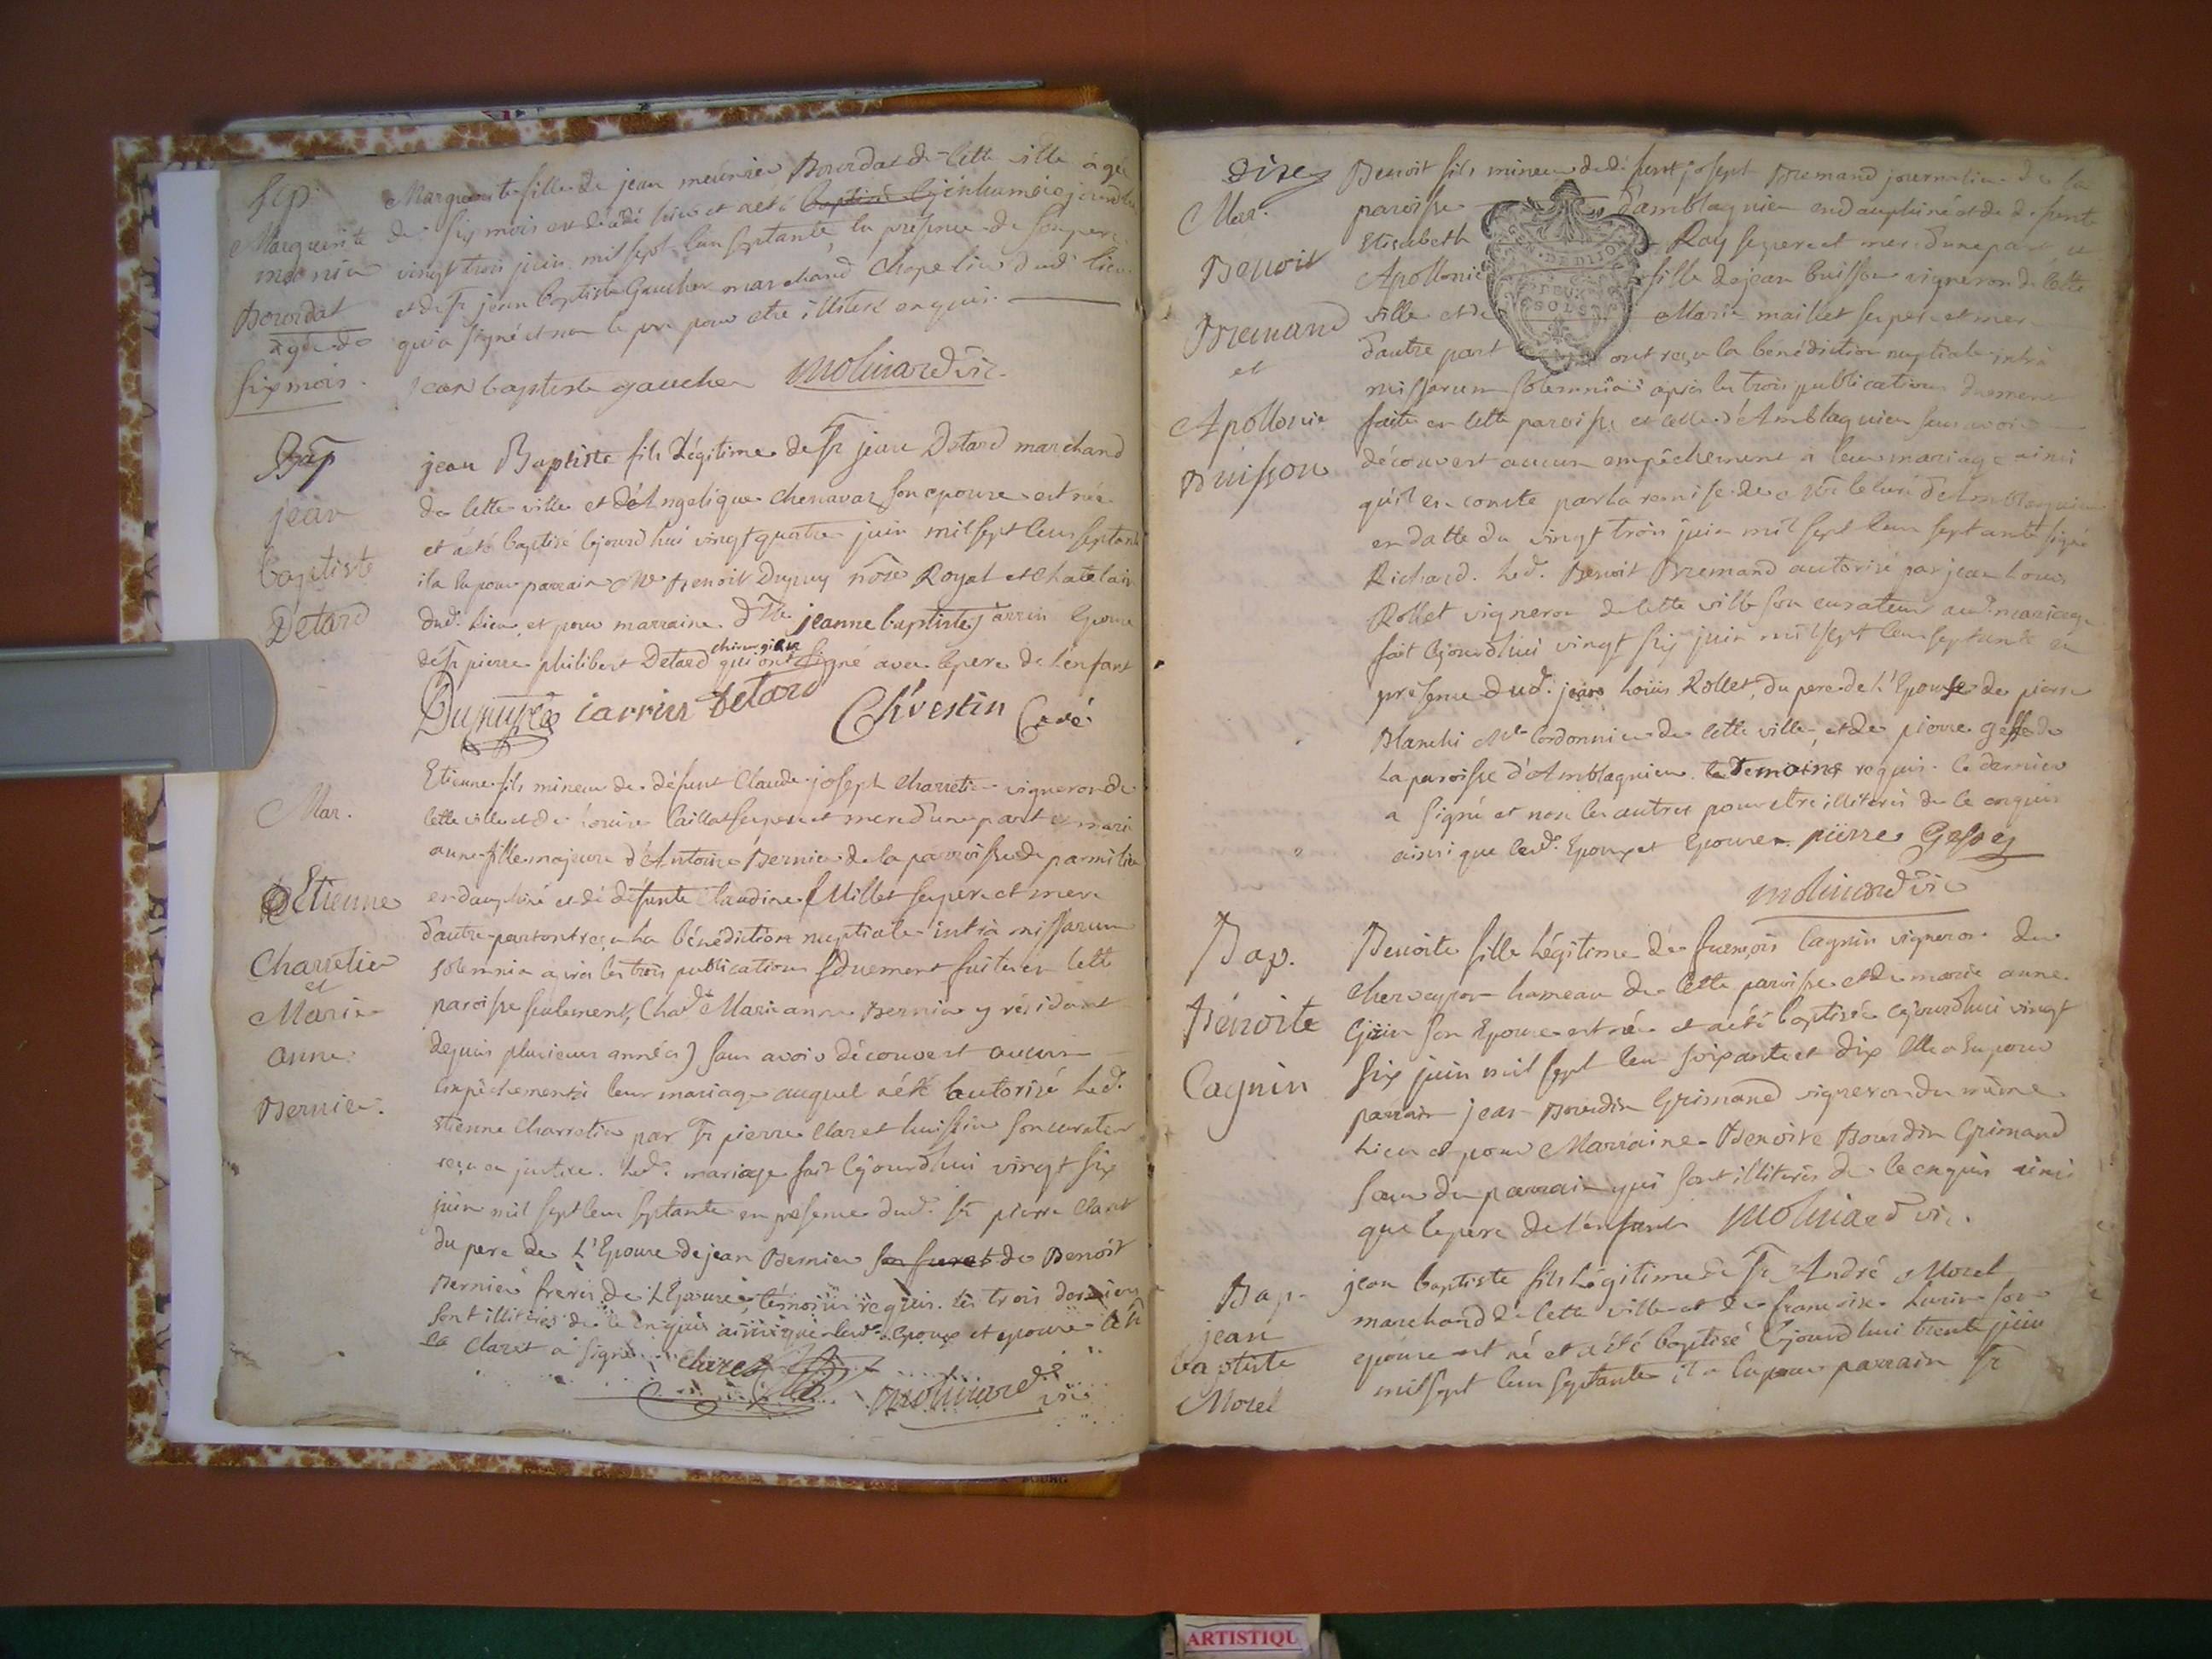 Sep.
Marguerite
meunier
Bourdat
agée de
six mois.
Marguerite fille de jean meunier Bourdat de cette ville agée
de six mois est décédé hier et a été baptisé inhumée cejourdhui
vingt trois juin mil sept cens septante, en presence de son pere
et de Sr jean baptiste Gaucher marchand Chapelier dud. lieu
qui a signé et non le pere pour etre illiteré enquis.
jean baptiste gaucher Molinard vic.
Bap
jean
baptiste
Detard
jean Baptiste fils Légitime de Sr jean Detard marchand
de cette ville et d'Angelique chenavaz son epouse est née
et a été baptisé cejourdhui vingt quatre juin mil sept cens septante
il a eu pour parrain Me Benoit Dupuy nore Royal et chatelain
dud. lieu, et pour marraine dlle jeanne baptiste jarrin epouse
de Sr pierre philibert Detard chirurgien qui ont signé avec le pere de l'enfant
Dupuy jarrin Detard Chvestin Curé
Mar.
Etienne
Charretier
et
Marie
anne
Bernier.
Etienne fils mineur de défunt Claude joseph Charretier vigneron de
cette ville et de Louise Caillat ses pere et mere d'une part et marie
anne fille majeure d'Antoine Bernier de la parroisse de parmilieu
en dauphiné et de défunte Claudine Millet ses pere et mere
d'autre part ont reçu la bénédiction nuptiale intrà missarum
solemnia après les trois publications duement faites en cette
paroisse seulement, (lad. Marie anne Bernier y résidant
depuis plusieurs années) sans avoir découvert aucun
empêchement à leur mariage auquel a été autorisé led.
Etienne Charretier par Sr pierre Claret huissier son curateur
reçu en justice. led. mariage fait cejourdhui vingt six
juin mil sept cens septante en presence dud. Sr pierre Claret
du pere de L'Epouse de jean Bernier de Benoit
Bernier freres de L'Epouse, témoins requis. les trois derniers
sont illiterés de ce enquis ainsi que lesd. epoux et epouse led. Sr
Claret a signé. Claret Molinard
vic
dixe
Mar.
Benoit
Bremand
et
Apollonie
Buisson
Benoit fils mineur de défunt joseph Bremand journalier de la
paroisse d'amblagnieu en dauphiné et de défunte
Elisabeth Roy ses pere et mere d'une part, et
Apollonie fille de jean buisson vigneron de cette
ville et de Marie maillet ses pere et mere
d'autre part ont reçu la bénédiction nuptiale intrà
missarum solemnia après les trois publications duement
faites en cette paroisse et celle d'Amblagnieu sans avoir
découvert aucun empêchement à leur mariage ainsi
qu'il en conste par la remise de Mr le curé d'Amblagnieu
en datte du vingt trois juin mil sept cens septante signé
Richard. Led. Benoit Bremand autorisé par jean Louis
Rollet vigneron de cette ville son curateur aud. mariage
fait cejourdhui vingt six juin mil sept cens septante en
presence dud. jean Louis Rollet, du pere de L'Epouse de pierre
Blanchi Me Cordonnier de cette ville, et de pierre gesse de
la paroisse d'Amblagnieu temoins requis. le dernier
a signé et non les autres pour etre illiterés de ce enquis
ainsi que lesd. Epoux et Epouse. pierre Gesse
Molinard vic
Bap.
Bénoite
Cagnin
Benoite fille Légitime de francois Cagnin vigneron de
hameau de cette paroisse et de marie anne
son Epouse est née et a été baptisée cejourdhui vingt
six juin mil sept cens soixante et dix elle a eu pour
parrain jean Bourdin Grimand vigneron du même
Lieu et pour Marraine Benoite Bourdin Grimand
sœur du parrain qui sont illiterés de ce enquis ainsi
que le pere de l'enfant Molinard vic.
Bap.
jean
baptiste
Morel
jean baptiste fils Légitime de Sr André Morel
marchand de cette ville et de francoise Lurin son
epouse est né et a été baptisé Cejourdhui trente juin
mil sept cens septante il a eu pour parrain Sr
ARTISTIQU